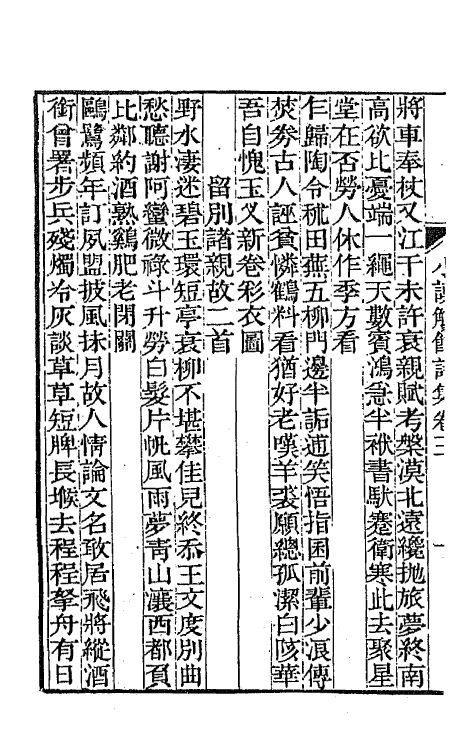 將車奉杖又江干未許衰親賦考槃漠北遠纔拋旅夢終南
高欲比憂端一繩天數賓鴻急半袱書馱蹇衛寒此去聚星
堂在否勞人休作季方看
乍歸陶令秫田蕪五柳門邊半詬逋笑悟指囷前輩少浪傳
焚券古人誣貧憐鶴料看猶好老嘆羊裘願總孤潔白陔華
吾自愧玉叉新卷彩衣圖
留別諸親故二首
野水淒迷碧玉環短亭衰柳不堪攀佳兒終忝王文度別曲
愁聽謝阿蠻微祿斗升勞白髮片帆風雨夢靑山瀼西都負
比鄰約酒熟鷄肥老閉關
鷗鷺頻年訂夙盟披風抹月故人情論文名敢居飛將縱酒
銜曾署步兵殘燭冷灰談草草短牌長堠去程程拏舟有日